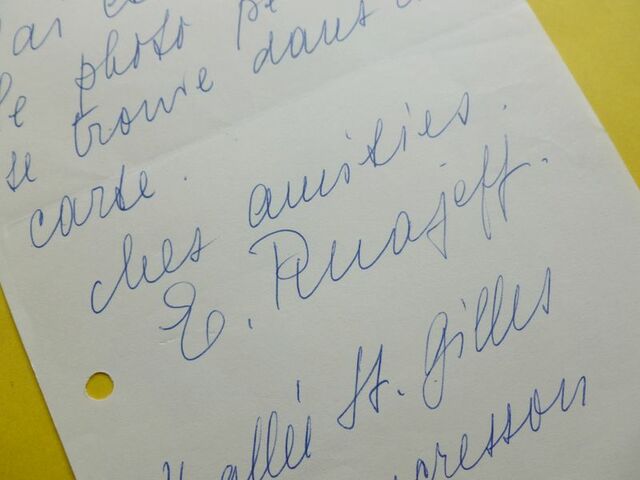 le photo
se trouve dans
carte.
Mes amitiés.
E.
allée St. Gilles
cresson